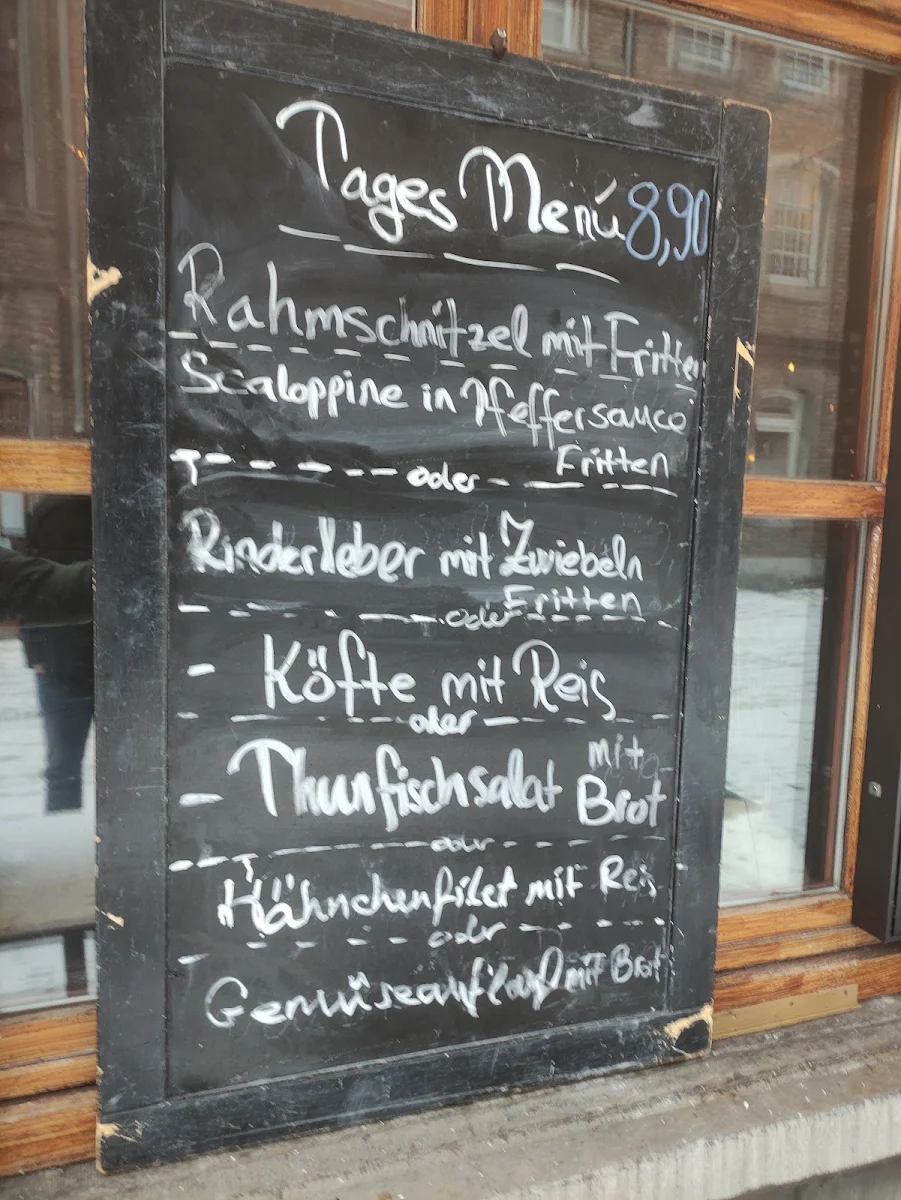 Tages Menú 8,90
Rahmschnitzel mit Fritten
Scaloppine in Pfeffersauce
Fritten
oder
Rinderleber mit Zwiebeln
Fritten
oder
- Köfte mit Reis
oder
- Thunfischsalat mit Brot
oder
Hähnchenfilet mit Reis
oder
Gemüseauflauf mit Brot